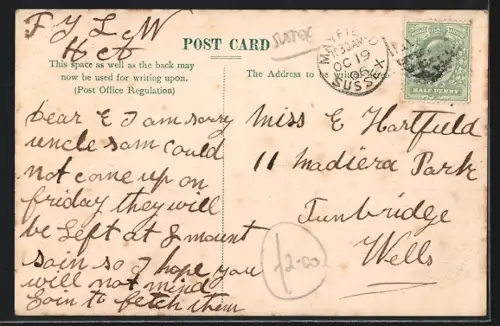 F Y L & W
H & A
SUSSEX
POST CARD
This space as well as the back may
now be used for writing upon.
(Post Office Regulation)
The Address to be
OC 19
05
SUSSEX
HALF PENNY
Dear E I am sorry
uncle sam could
not come up on
friday they will
be left at & mount
soin so I hope you
will not mind
Goin to fetch them
Miss E Hartfield
11 Madiera Park
Tunbridge
Wells
£2.00